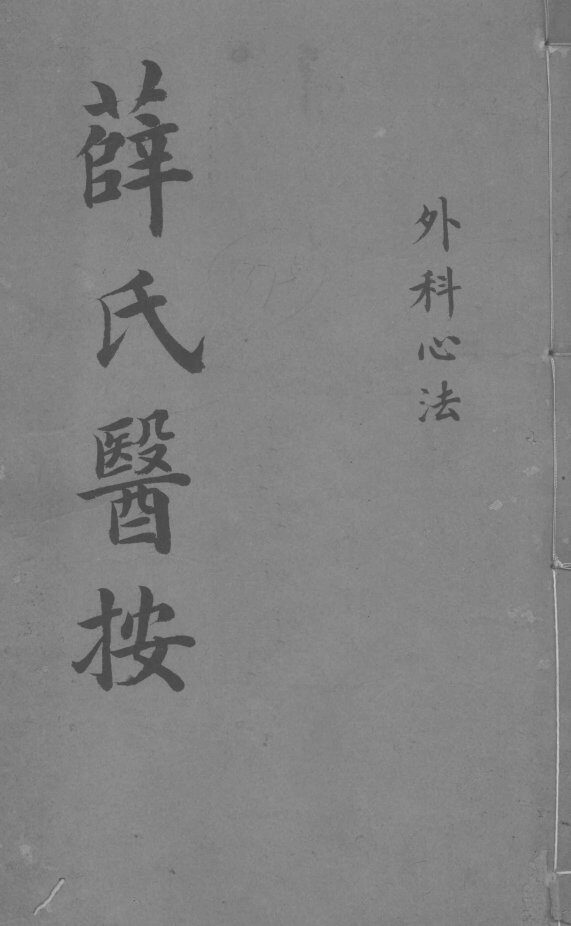 外科心法
薛氏醫按